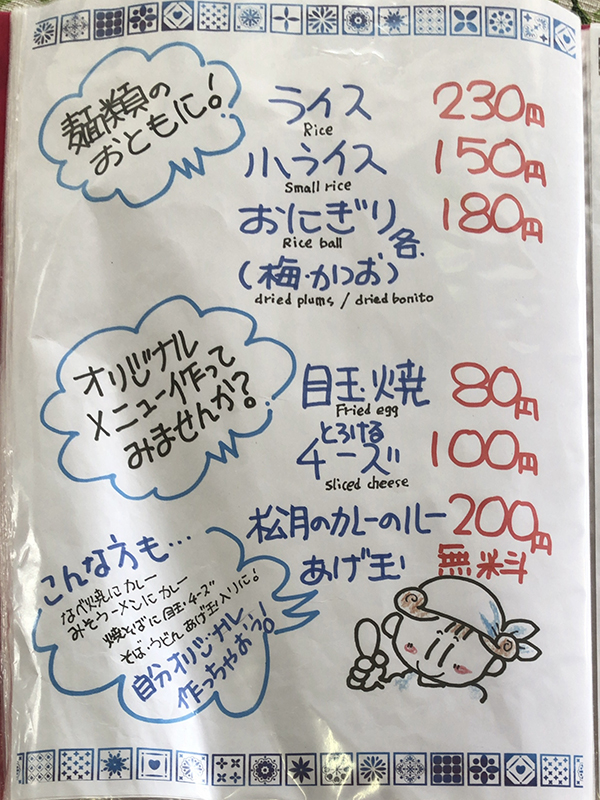 麺類の
おともに!
ライス 230円
Rice
小ライス 150円
Small rice
おにぎり各 180円
Rice ball
(梅・かつお)
dried plums / dried bonito
オリジナル
メニュー作って
みませんか?
目玉焼 80円
Fried egg
とろける
チーズ 100円
Sliced cheese
松月のカレーのルー 200円
あげ玉 無料
こんな方も…
なべ焼にカレー
みそラーメンにカレー
焼そばに目玉・チーズ
そば・うどんあげ玉入りに!
自分オリジナル
作っちゃおう!